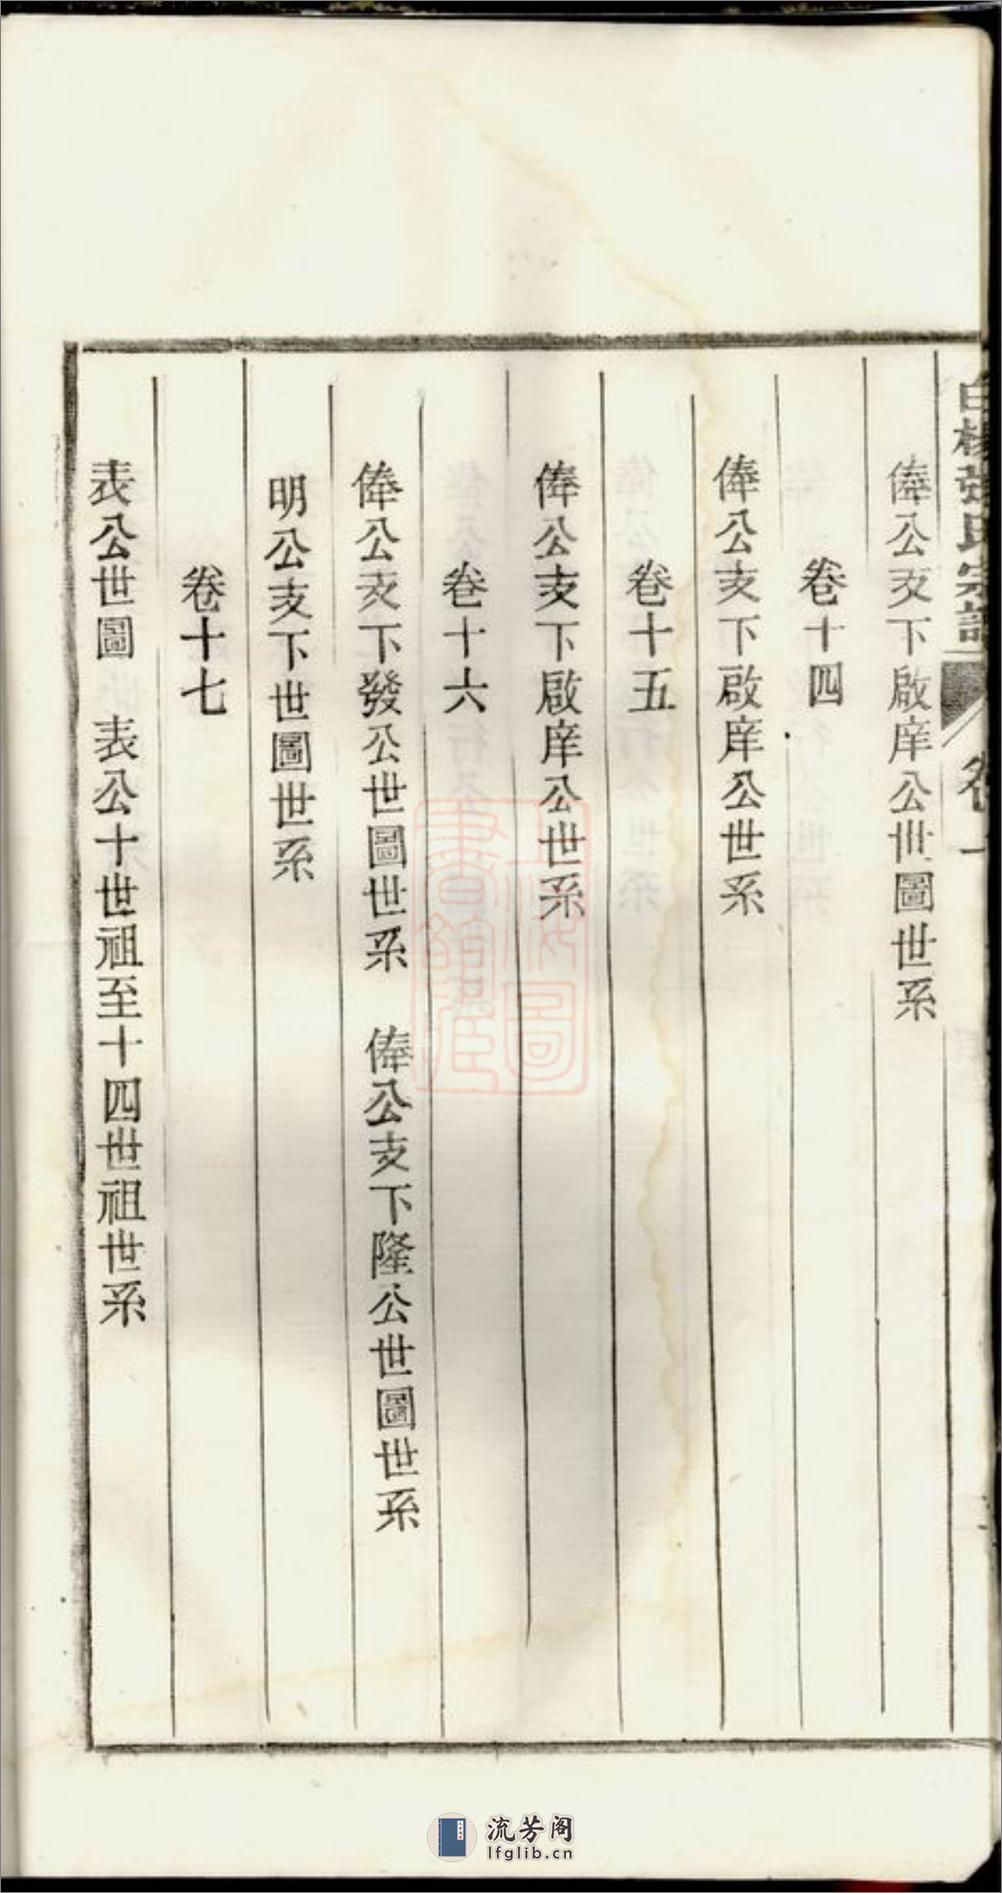 白楊張氏宗譜 卷一
俸公支下啟庠公世圖世系
卷十四
俸公支下啟庠公世系
卷十五
俸公支下啟庠公世系
卷十六
俸公支下發公世圖世系 俸公支下隆公世圖世系
明公支下世圖世系
卷十七
表公世圖 表公十世祖至十四世祖世系
流芳阁
lfglib.cn